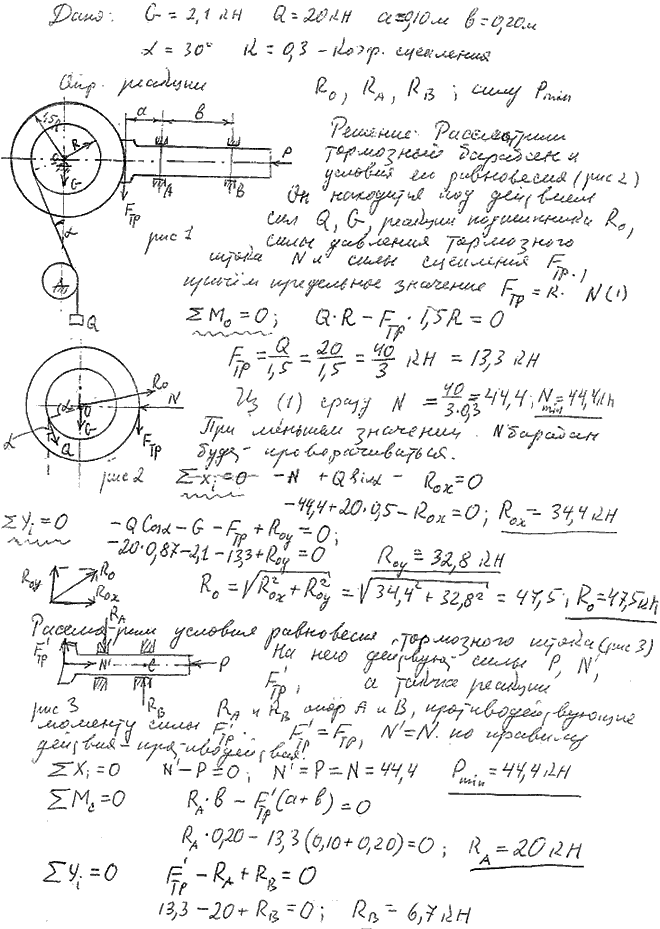 Дано: G = 2,1 кН Q = 20 кН a = 0,10 м b = 0,20 м
α = 30° K = 0,3 – коэф. сцепления
Опр. реакции R_O, R_A, R_B; силу P_min
1,5R R a b
C G A B P
F_тр
α
рис 1
A
Q
Решение: Рассмотрим
тормозной барабан и
условия его равновесия (рис 2)
Он находится под действием
сил Q, G, реакции подшипника R_O,
силы давления тормозного
штока N и силы сцепления F_тр,
причём предельное значение F_тр = K · N (1)
ΣM_O = 0; Q·R – F_тр·1,5R = 0
F_тр = Q/1,5 = 20/1,5 = 40/3 кН = 13,3 кН
Из (1) сразу N = 40/(3·0,3) = 44,4; N_min = 44,4 кН
При меньшем значении N барабан
будет проворачиваться.
R_O N
α O
G F_тр
α Q
рис 2
ΣX_i = 0 –N + Q sin α – R_Ox = 0
–44,4 + 20·0,5 – R_Ox = 0; R_Ox = 34,4 кН
ΣY_i = 0 –Q Cos α – G – F_тр + R_Oy = 0;
–20·0,87 – 2,1 – 13,3 + R_Oy = 0 R_Oy = 32,8 кН
R_Oy R_O R_Ox
R_O = √(R_Ox² + R_Oy²) = √(34,4² + 32,8²) = 47,5; R_O = 47,5 кН
Рассмотрим условия равновесия тормозного штока (рис 3)
R_A
F'_тр N' C P
R_B
рис 3
На него действуют силы P, N',
F'_тр, а также реакции
R_A и R_B опор A и B, противодействующие
моменту силы F'_тр. F'_тр = F_тр, N' = N по правилу
действия – противодействия.
ΣX_i = 0 N' – P = 0; N' = P = N = 44,4 P_min = 44,4 кН
ΣM_C = 0 R_A·b – F'_тр(a+b) = 0
R_A·0,20 – 13,3(0,10 + 0,20) = 0; R_A = 20 кН
ΣY_i = 0 F'_тр – R_A + R_B = 0
13,3 – 20 + R_B = 0; R_B = 6,7 кН